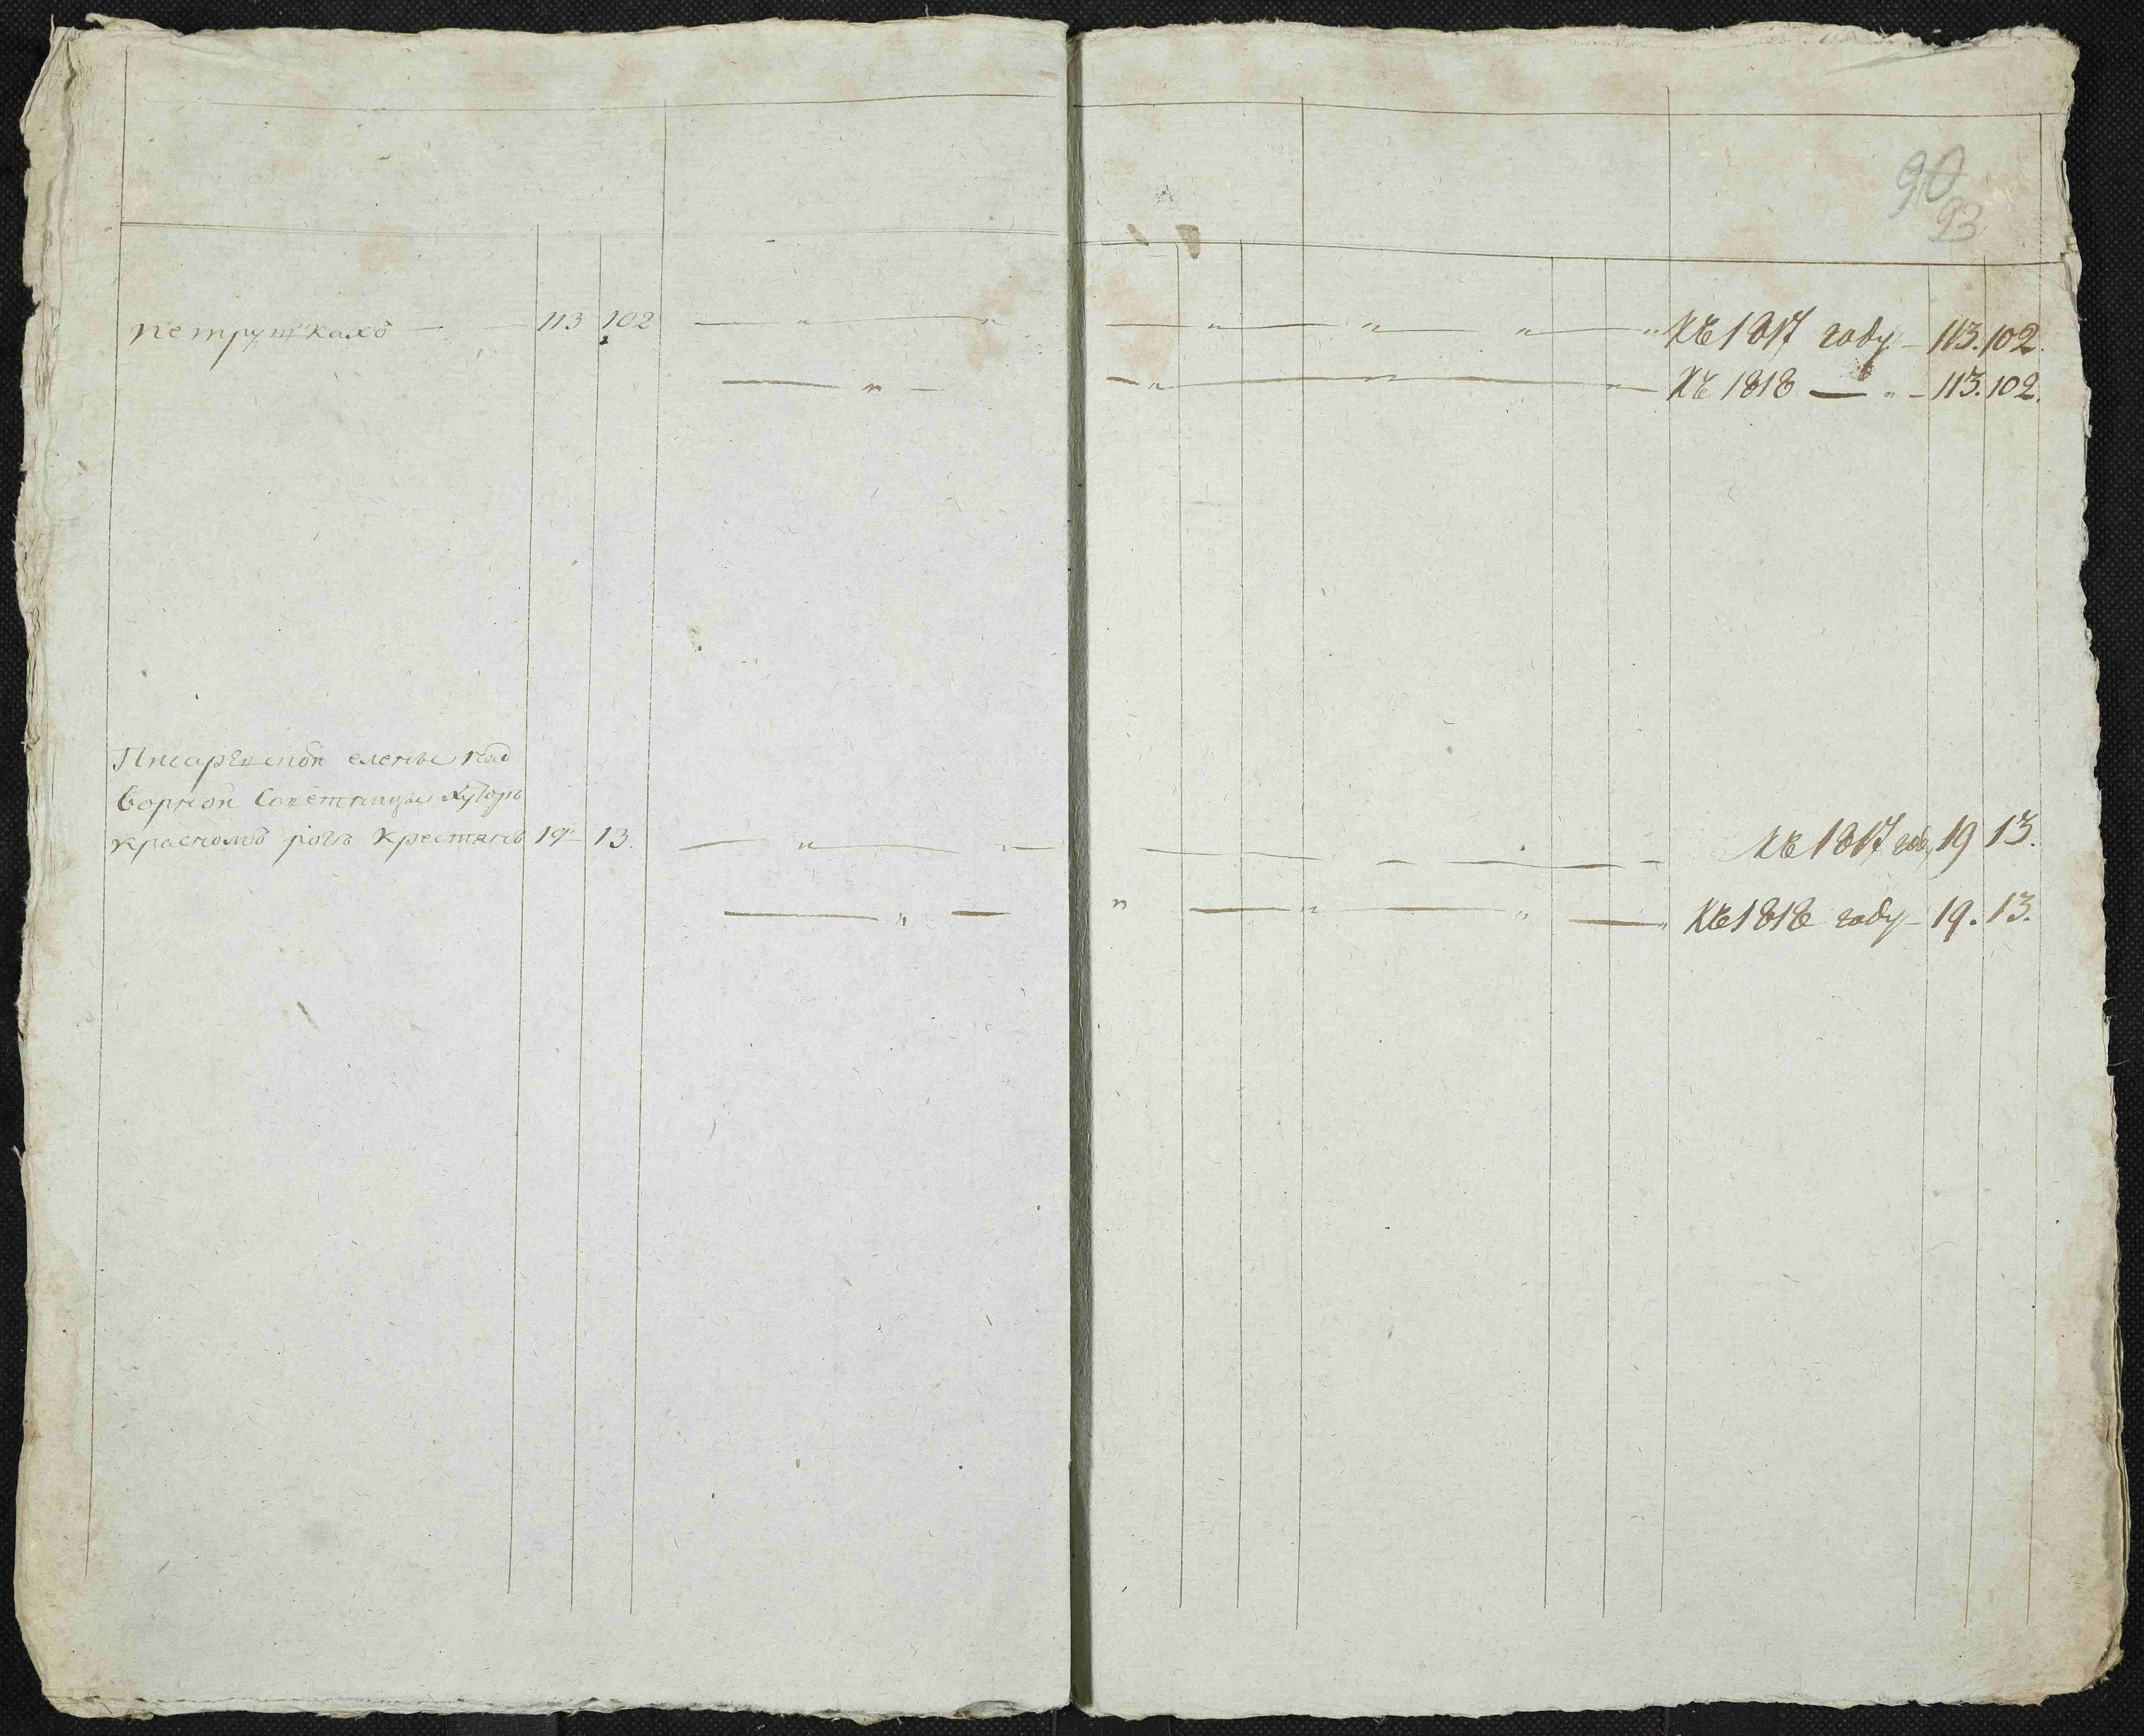 90
93
петрушкахъ — — 113 102 — „ — „ — „ — „ — „ — „ Къ 1817 году — 113. 102.
— „ — — „ — „ — „ — Къ 1818 — „ — 113. 102.
Писаревой елены над
ворной Советницы Хуторъ
красномъ рогѣ крестянъ 19 13. — „ — „ — — — — — Къ 1817 году 19 13.
— „ — „ — „ — „ — „ Къ 1818 году — 19. 13.